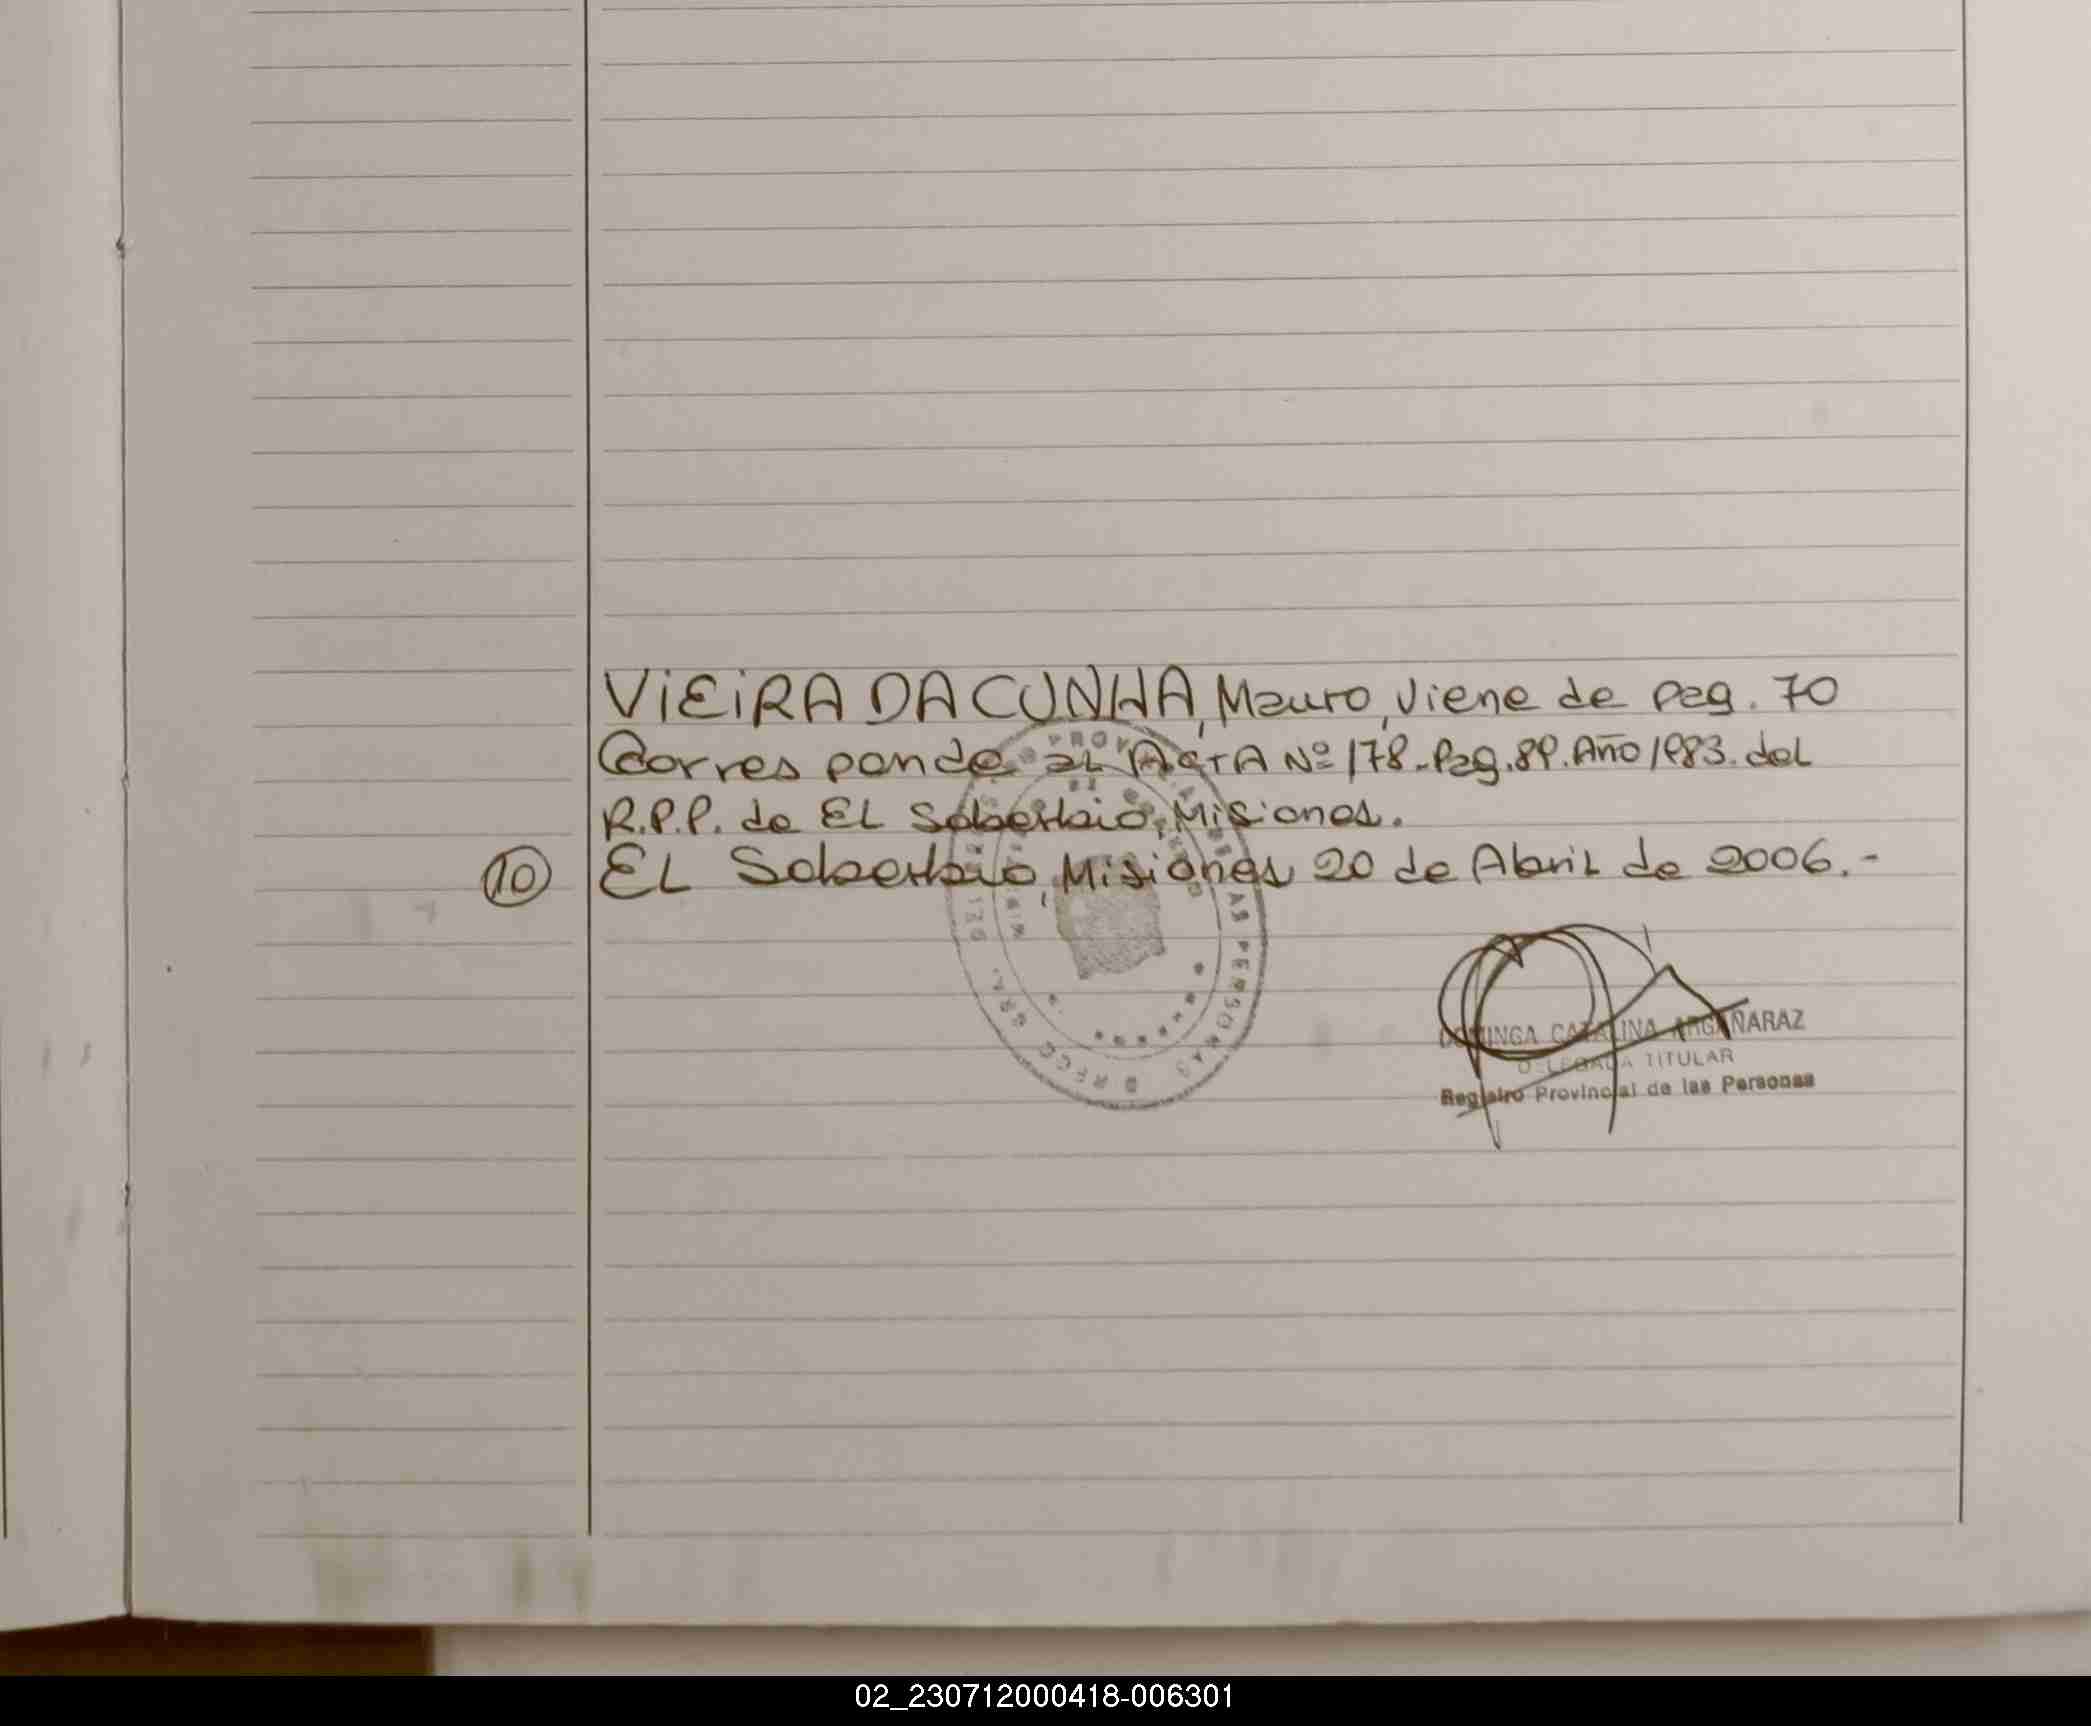 VIEIRA DA CUNHA, Mauro, Viene de pag. 70
Corresponde al ACTA Nº 178-Pag.89.Año 1983.del
R.P.P. de EL Soberbio, Misiones.
10 EL Soberbio, Misiones 20 de Abril de 2006.-
AS PERSONAS
DOMINGA CATALINA ARGAÑARAZ
DELEGADA TITULAR
Registro Provincial de las Personas
02_230712000418-006301